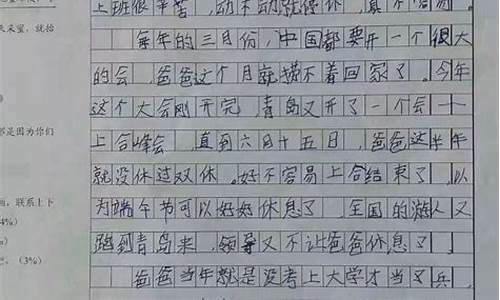 上班很辛苦，动不动就停休，真不容易。
每年的三月份，中国都要开一个很大
的会，爸爸这个月就捞不着回家了。今年
这个大会刚开完，青岛又开了一个会——
上合峰会，直到六月十五日，爸爸这半年
就没休过双休。好不容易上合结束了，以
为端午节可以好好休息了，全国的游人又
跑到青岛来，领导又不让爸爸休息了。
爸爸当年就是没考上大学才当了兵，
天来望，就抬
那是因为你们
，联系上下
4%）
（3%）